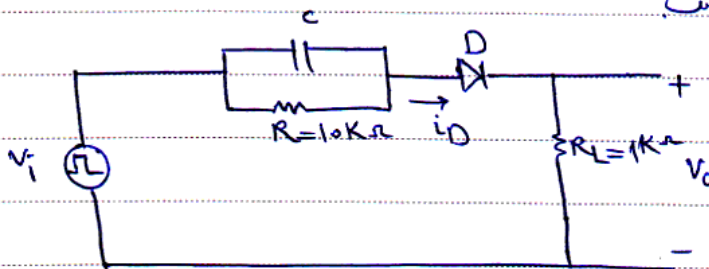 C
D
R=10KΩ
iD
Vi
RL=1KΩ
+
-